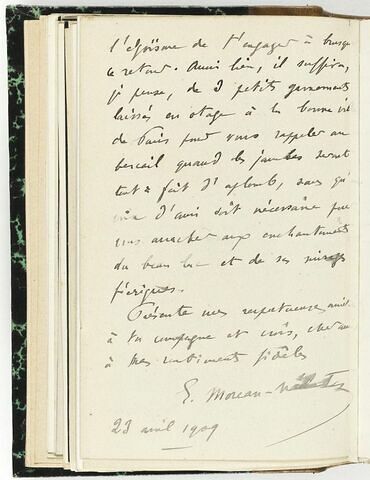 l'égoïsme de t'engager à brusquer
ce retour. Aussi bien, il suffira,
je pense, de 3 petits garnements
laissés en otage à la bonne ville
de Paris pour vous rappeler au
bercail quand les jambes seront
tout à fait d'aplomb, sans qu'
d'amis soit nécessaire pour
vous arracher aux enchantements
du beau lac et de ses mirages
féeriques.
Présente mes respectueuses amitiés
à ta compagne et crois, cher ami
à mes sentiments fidèles
E. Moreau-Nélaton
23 avril 1909